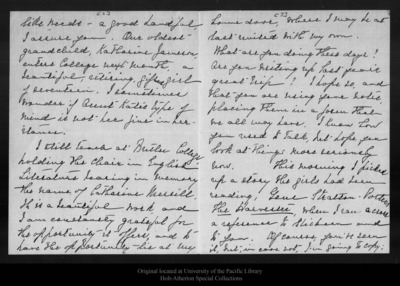 like weeds - a good handful
I assure you. Our oldest
grandchild, Katharine Jameson
enters College next month, a
beautiful, retiring, gifted girl
of seventeen. I sometimes
wonder if Aunt Katie's type of
mind is not her fine in her-
itance.
I still teach at Butler College
holding the Chair in English
Literature bearing in memory
the name of Catharine Merrill.
It is a beautiful work and
I am constantly grateful for
the opportunity it offers, and to
have the opportunity lie at my
home door, where I may be at
last united with my own.
What are you doing these days?
Are you writing up last year's
great trip? I hope so and
that you are using your notes,
placing them in a form that
we all may have. I know how
you used to talk, but hope you
look at things more seriously
now. This morning I picked
up a story the girls had been
reading, Gene Stratton-Porter's
The Harvester, when I ran across
a reference to Stickeen and
to you. Of course you've seen
it, but in case not, I'm going to copy:
Original located at University of the Pacific Library
Holt-Atherton Special Collections